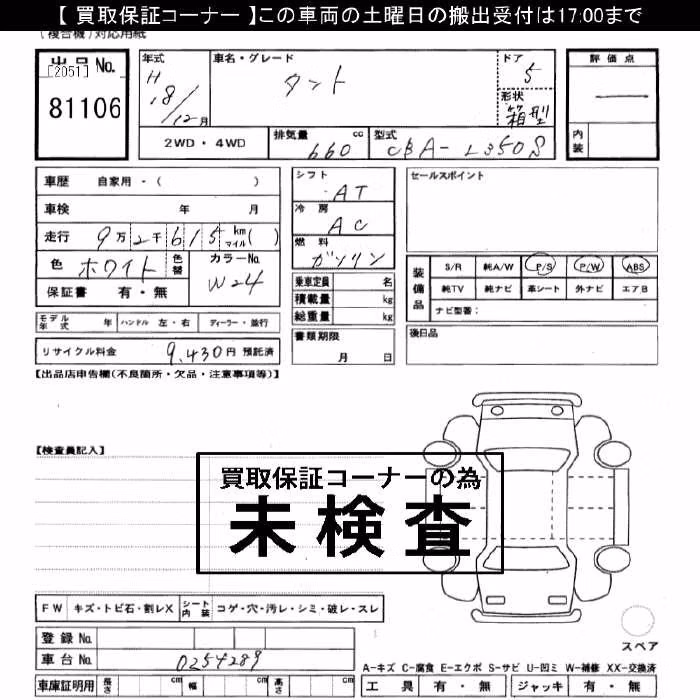 【 買取保証コーナー 】この車両の土曜日の搬出受付は17:00まで
(複合機)対応用紙
出品No.
[2051]
81106
年式
H
18/12月
車名・グレード
タント
ドア
5
形状
箱型
評価点
内装
2WD・4WD
排気量 cc
660
型式
CBA-L350S
車歴 自家用・( )
車検 年 月
走行 9万2千615 km マイル( )
色 ホワイト 色替
カラーNo.
W24
保証書 有・無
シフト
AT
冷房
AC
燃料
ガソリン
乗車定員 名
積載量 kg
総重量 kg
書類期限
月 日
セールスポイント
装備品
S/R 純A/W P/S P/W ABS
純TV 純ナビ 革シート 外ナビ エアB
ナビ型番:
後日品
モデル年式 年 ハンドル 左・右 ディーラー・並行
リサイクル料金 9,430円 預託済
【出品店申告欄(不良箇所・欠品・注意事項等)】
【検査員記入】
買取保証コーナーの為
未検査
FW キズ・トビ石・割レX シート内装 コゲ・穴・汚レ・シミ・破レ・スレ
登録No.
車台No. 0254289
車庫証明用 長さ cm 幅 cm 高さ cm
スペア
A-キズ C-腐食 E-エクボ S-サビ U-凹ミ W-補修 XX-交換済
工具 有・無 ジャッキ 有・無